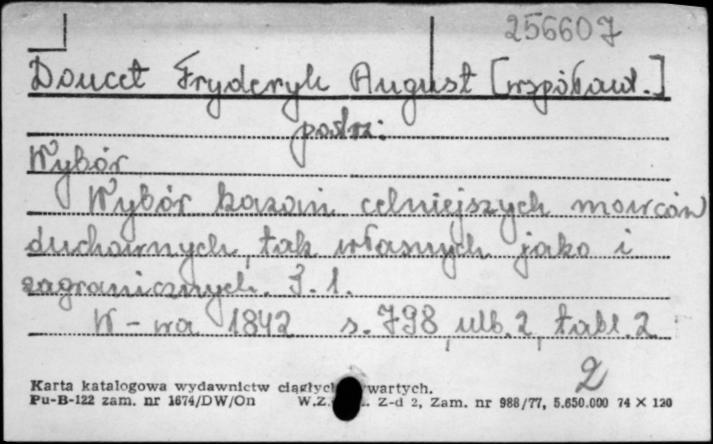 256607
Doucet Fryderyk August [współaut.]
patrz:
Wybór
Wybór kazań celniejszych mowców
duchownych, tak własnych jako i
zagranicznych. T. 1.
W-wa 1842 s. 798, ulb. 2, tabl. 2
2
Karta katalogowa wydawnictw ciągłych wartych.
Pu-B-122 zam. nr 1674/DW/On W.Z. Z-d 2, Zam. nr 988/77, 5.650.000 74 X 120